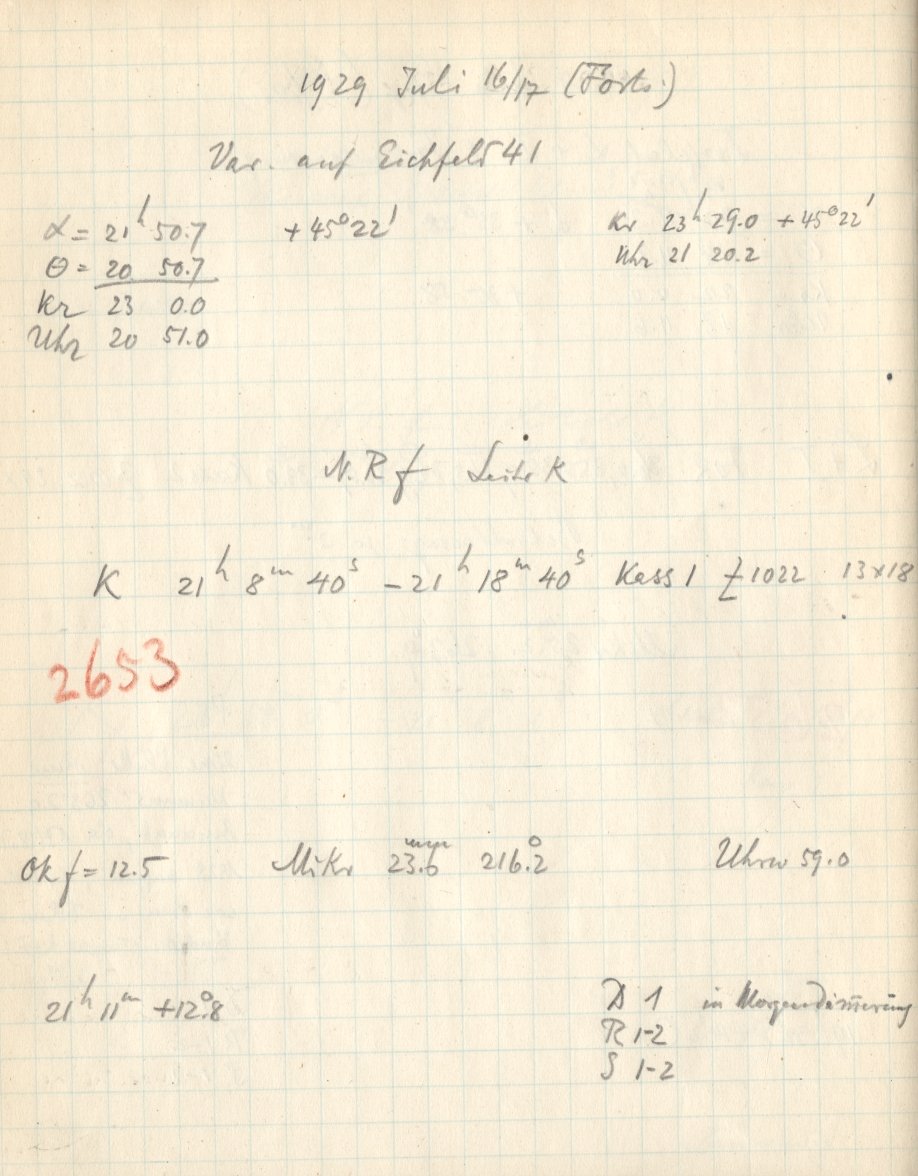 1929 Juli 16/17 (Forts.)
Var. auf Eichfeld 41
α = 21ʰ 50.7 +45° 22'
Θ = 20 50.7
Kr 23 0.0
Uhr 20 51.0
Kr 23ʰ 29.0 +45° 22'
Uhr 21 20.2
N. R f Seite K
K 21ʰ 8ᵐ 40ˢ – 21ʰ 18ᵐ 40ˢ Kass 1 Z 1022 13x18
2653
Ok f = 12.5 Mikr 23.6 mm 216.2° Uhrw 59.0
21ʰ 11ᵐ +12.8°
D 1 in Morgendämmerung
R 1-2
S 1-2